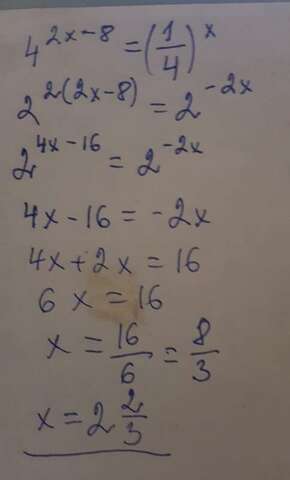 4^{2x-8} = (1/4)^x
2^{2(2x-8)} = 2^{-2x}
2^{4x-16} = 2^{-2x}
4x - 16 = -2x
4x + 2x = 16
6 x = 16
x = 16/6 = 8/3
x = 2 2/3